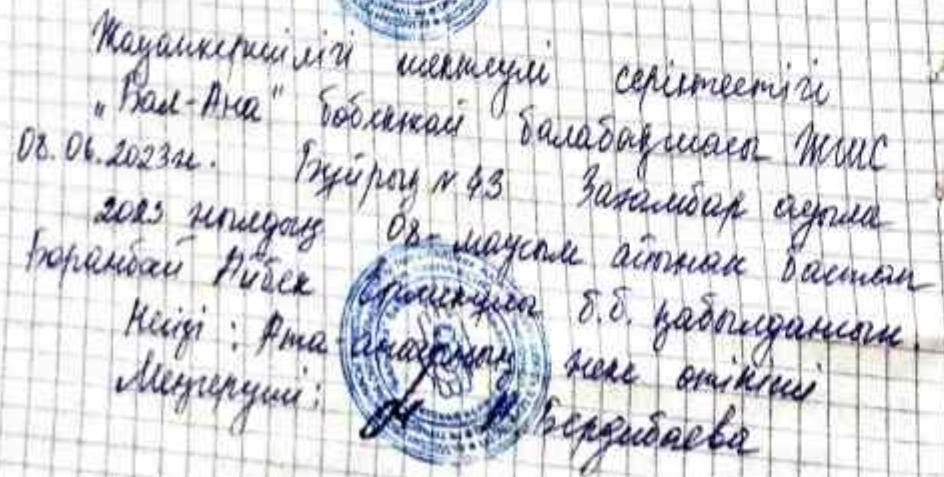 Жауапкершілігі шектеулі серіктестігі
"Бал-Ана" бөбекжай балабақшасы ЖШС
08.06.2023ж. Бұйрық N 43 Зағамбар ауылы
2023 жылдың 08-маусым айынан бастап
Баранбай Айбек б.б. қабылдансын.
Негізі: Ата анасының жеке өтініші
Меңгеруші: Бердибаева